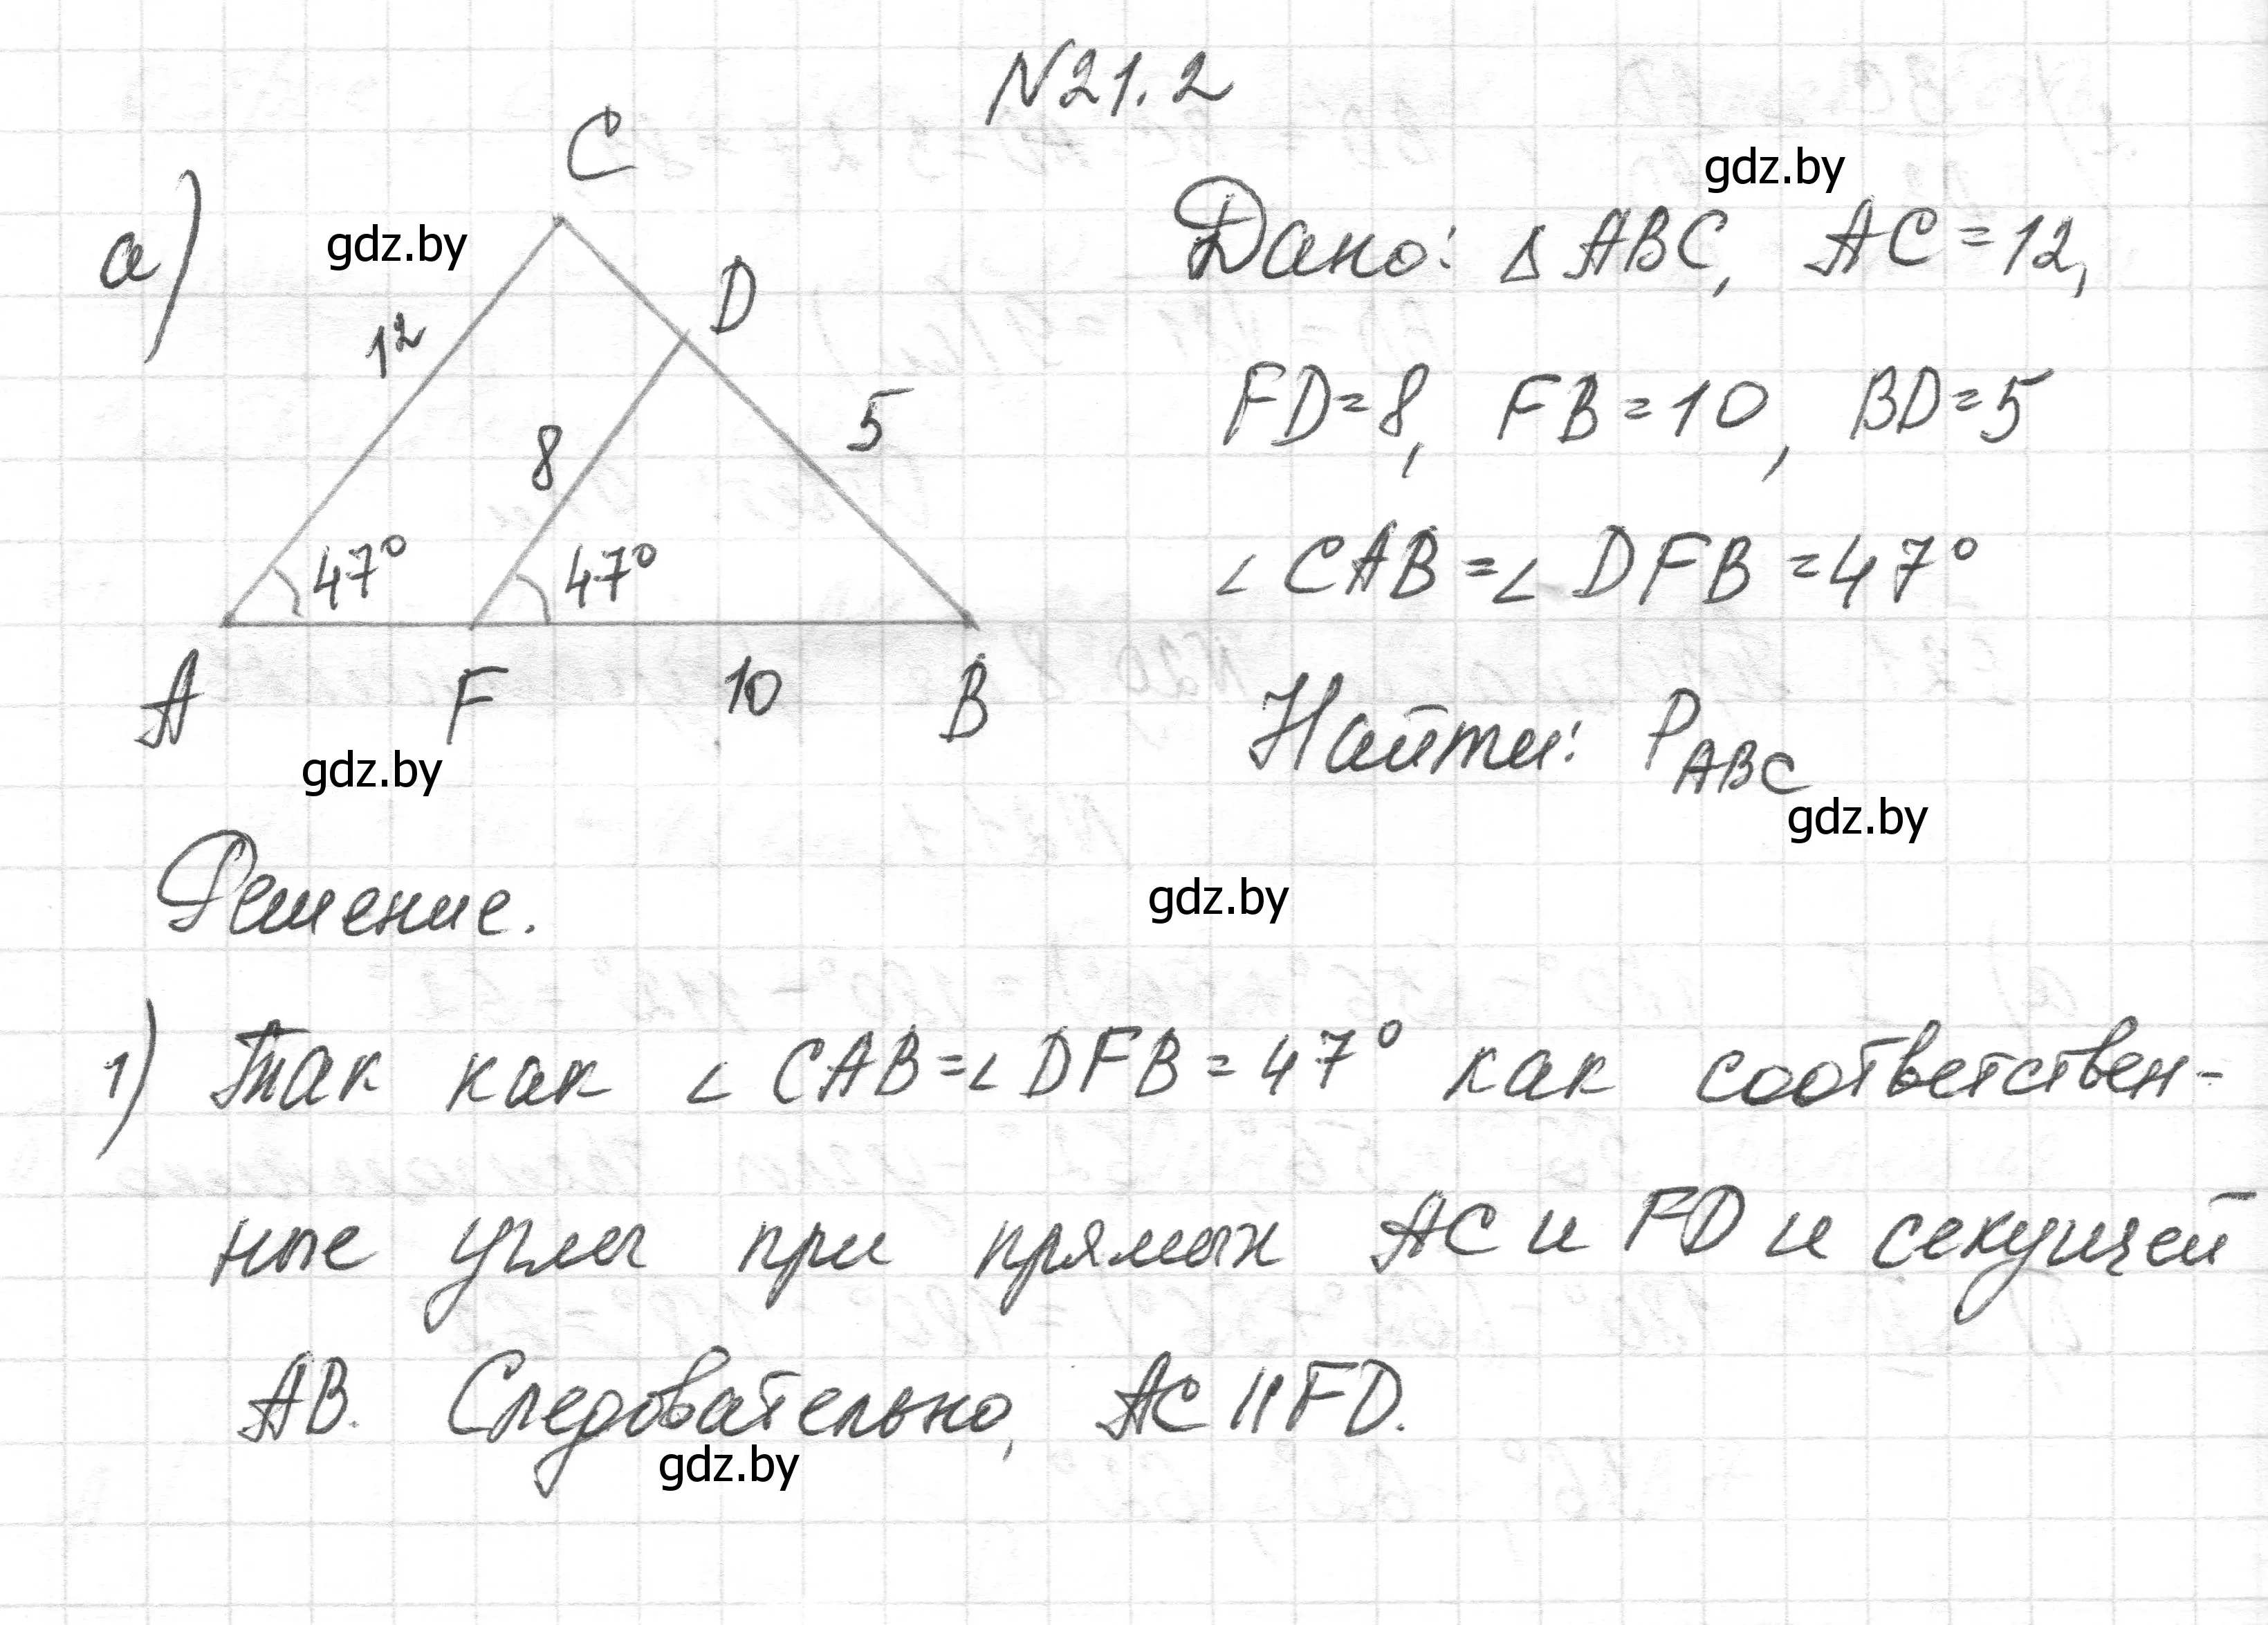 N21.2
а)
C
gdz.by
gdz.by
12
D
8
5
47°
47°
A
F
10
B
gdz.by
Дано: Δ ABC, AC = 12,
FD = 8, FB = 10, BD = 5
∠ CAB = ∠ DFB = 47°
Найти: P_ABC
gdz.by
Решение.
gdz.by
1) Так как ∠ CAB = ∠ DFB = 47° как соответствен-
ные углы при прямых AC и FD и секущей
AB. Следовательно, AC || FD.
gdz.by